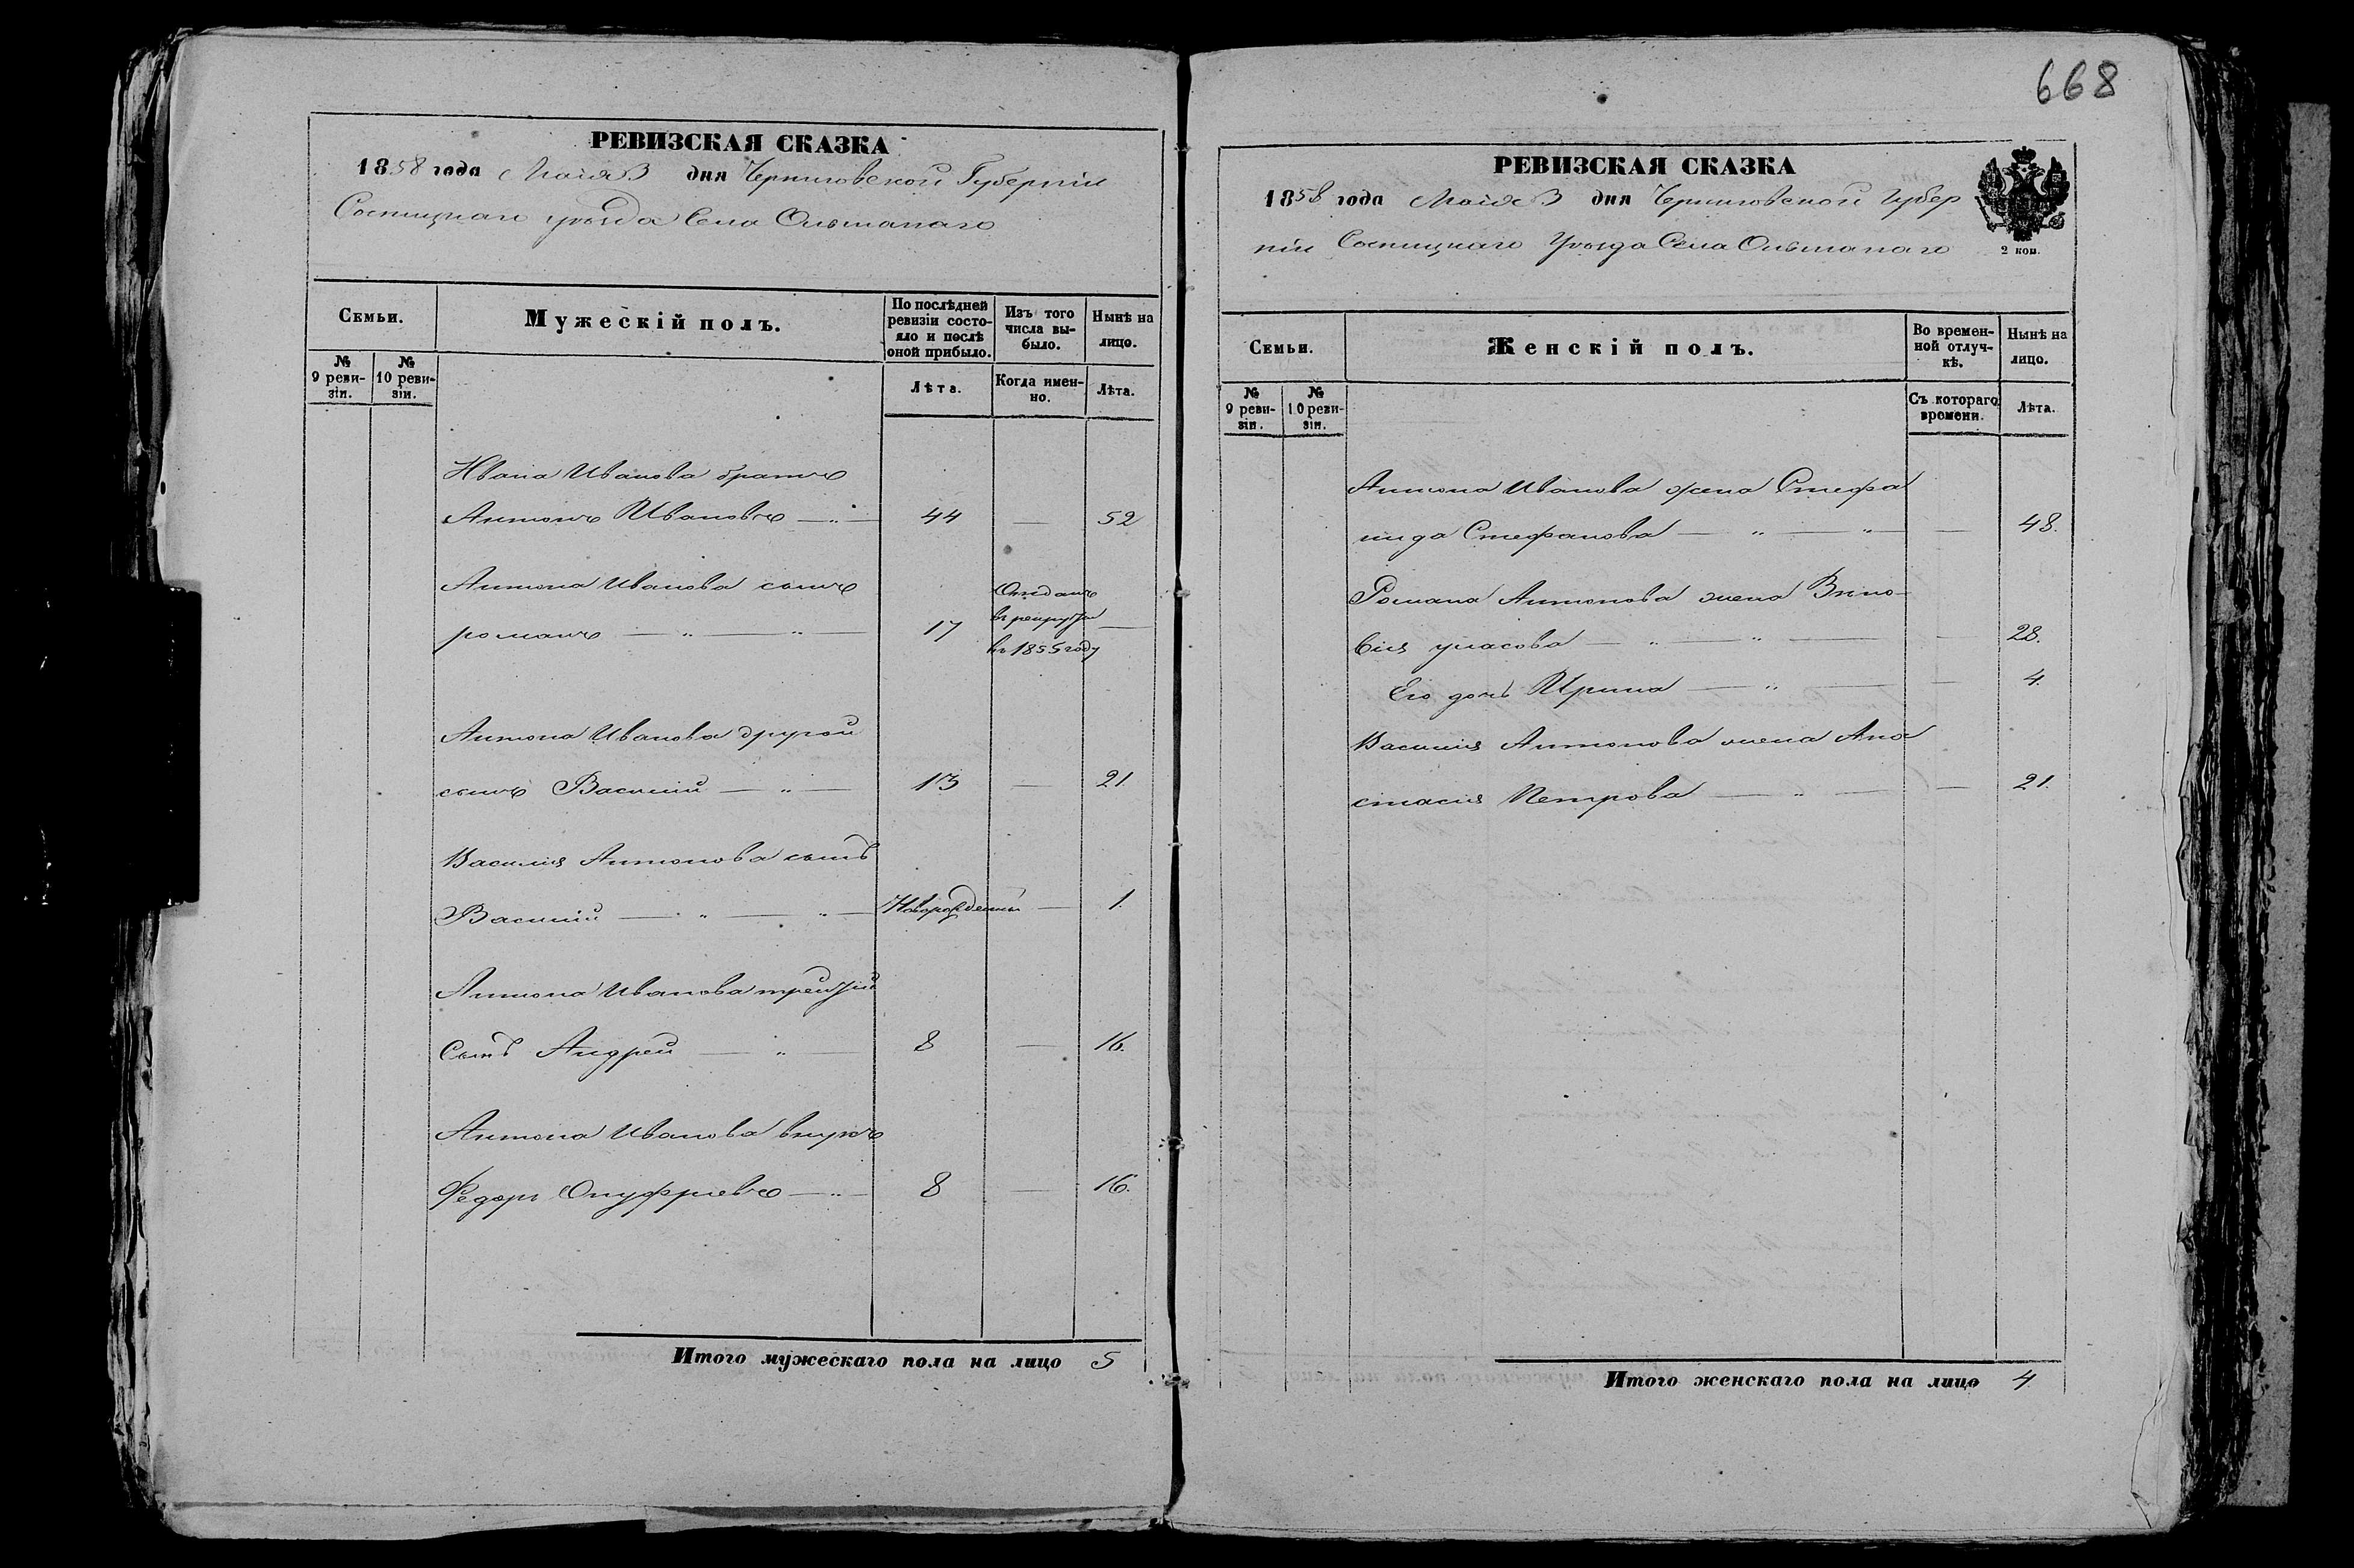 668
РЕВИЗСКАЯ СКАЗКА
1858 года Маія 3 дня Черниговской Губерніи
Сосницкаго уѣзда Села Ольшанаго
Семьи.
Мужескій полъ.
По послѣдней ревизіи состояло и послѣ оной прибыло.
Изъ того числа выбыло.
Нынѣ на лицо.
№ 9 ревизіи.
№ 10 ревизіи.
Лѣта.
Когда именно.
Лѣта.
Ивана Иванова братъ
Антонъ Ивановъ — „ — 44 — 52
Антона Иванова сынъ
романъ — „ — „ — 17 Отданъ въ рекруты въ 1855 году —
Антона Иванова другой
сынъ Василий — „ — 13 — 21.
Василия Антонова сынъ
Василий — „ — „ — Новорожденный — 1.
Антона Иванова третий
Сынъ Андрей — „ — 8 — 16.
Антона Иванова внукъ
Федоръ Онуфриевъ — „ — 8 — 16.
Итого мужескаго пола на лицо 5
РЕВИЗСКАЯ СКАЗКА
1858 года Маія 3 дня Черниговской Губер
ніи Сосницкаго Уѣзда Села Ольшанаго
2 коп.
Семьи.
Женскій полъ.
Во временной отлучкѣ.
Нынѣ на лицо.
№ 9 ревизіи.
№ 10 ревизіи.
Съ котораго времени.
Лѣта.
Антона Иванова жена Стефа
нида Стефанова — „ — „ — — 48.
Романа Антонова жена
— „ — „ — — 28.
Его дочь Ирина — „ — — 4.
Василия Антонова жена Ана
стасия Петрова — „ — — 21.
Итого женскаго пола на лицо 4.